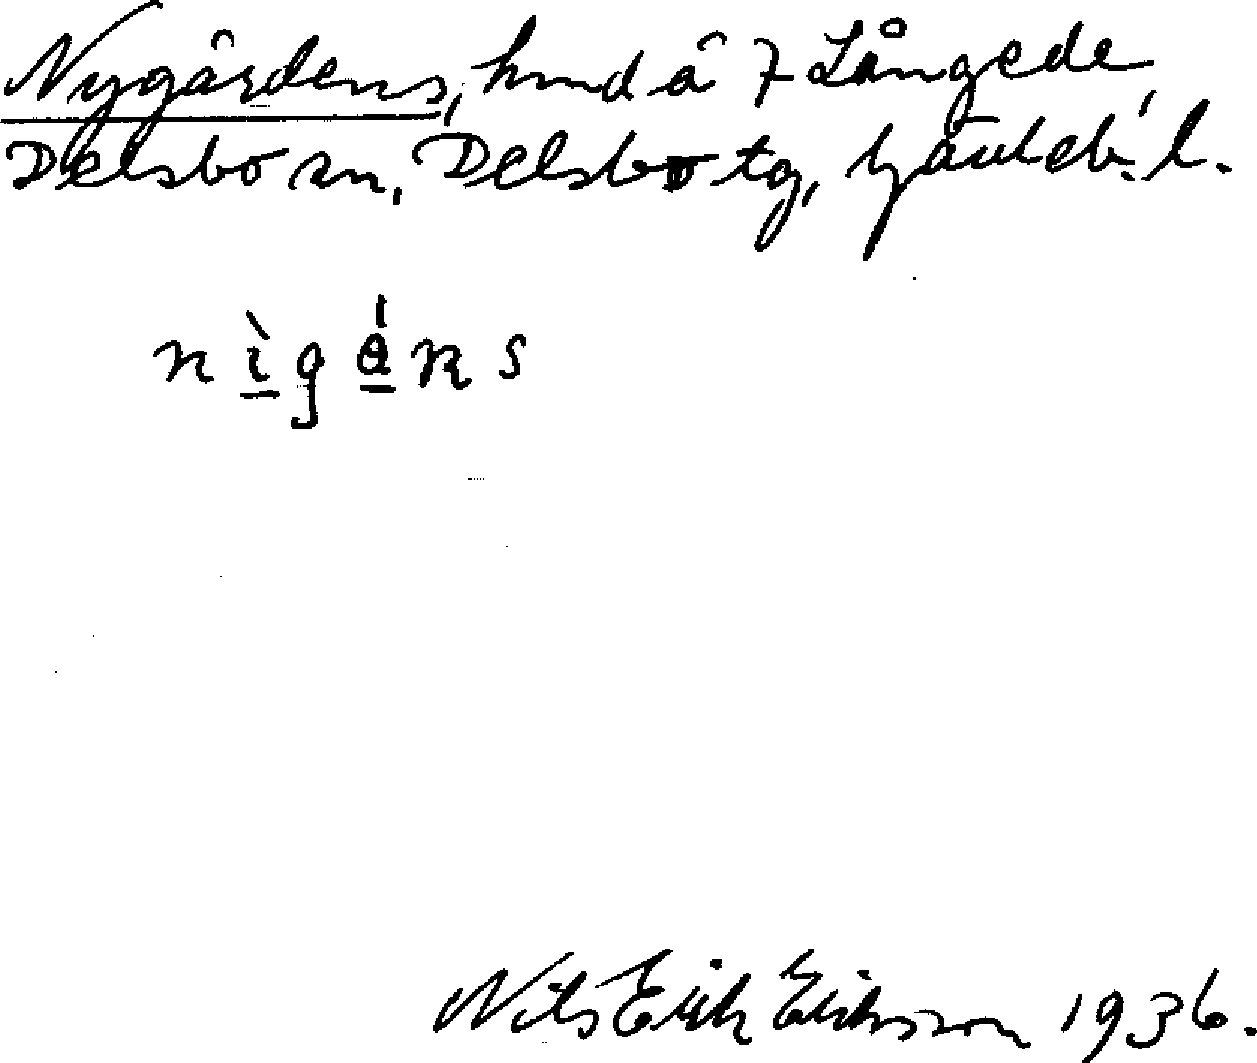 Nygårdens, hmd å 7 Långede
Delsbo sn, Delsbo tg, Gävleb. l.
nìgáns
Nils Erik Eriksson 1936.